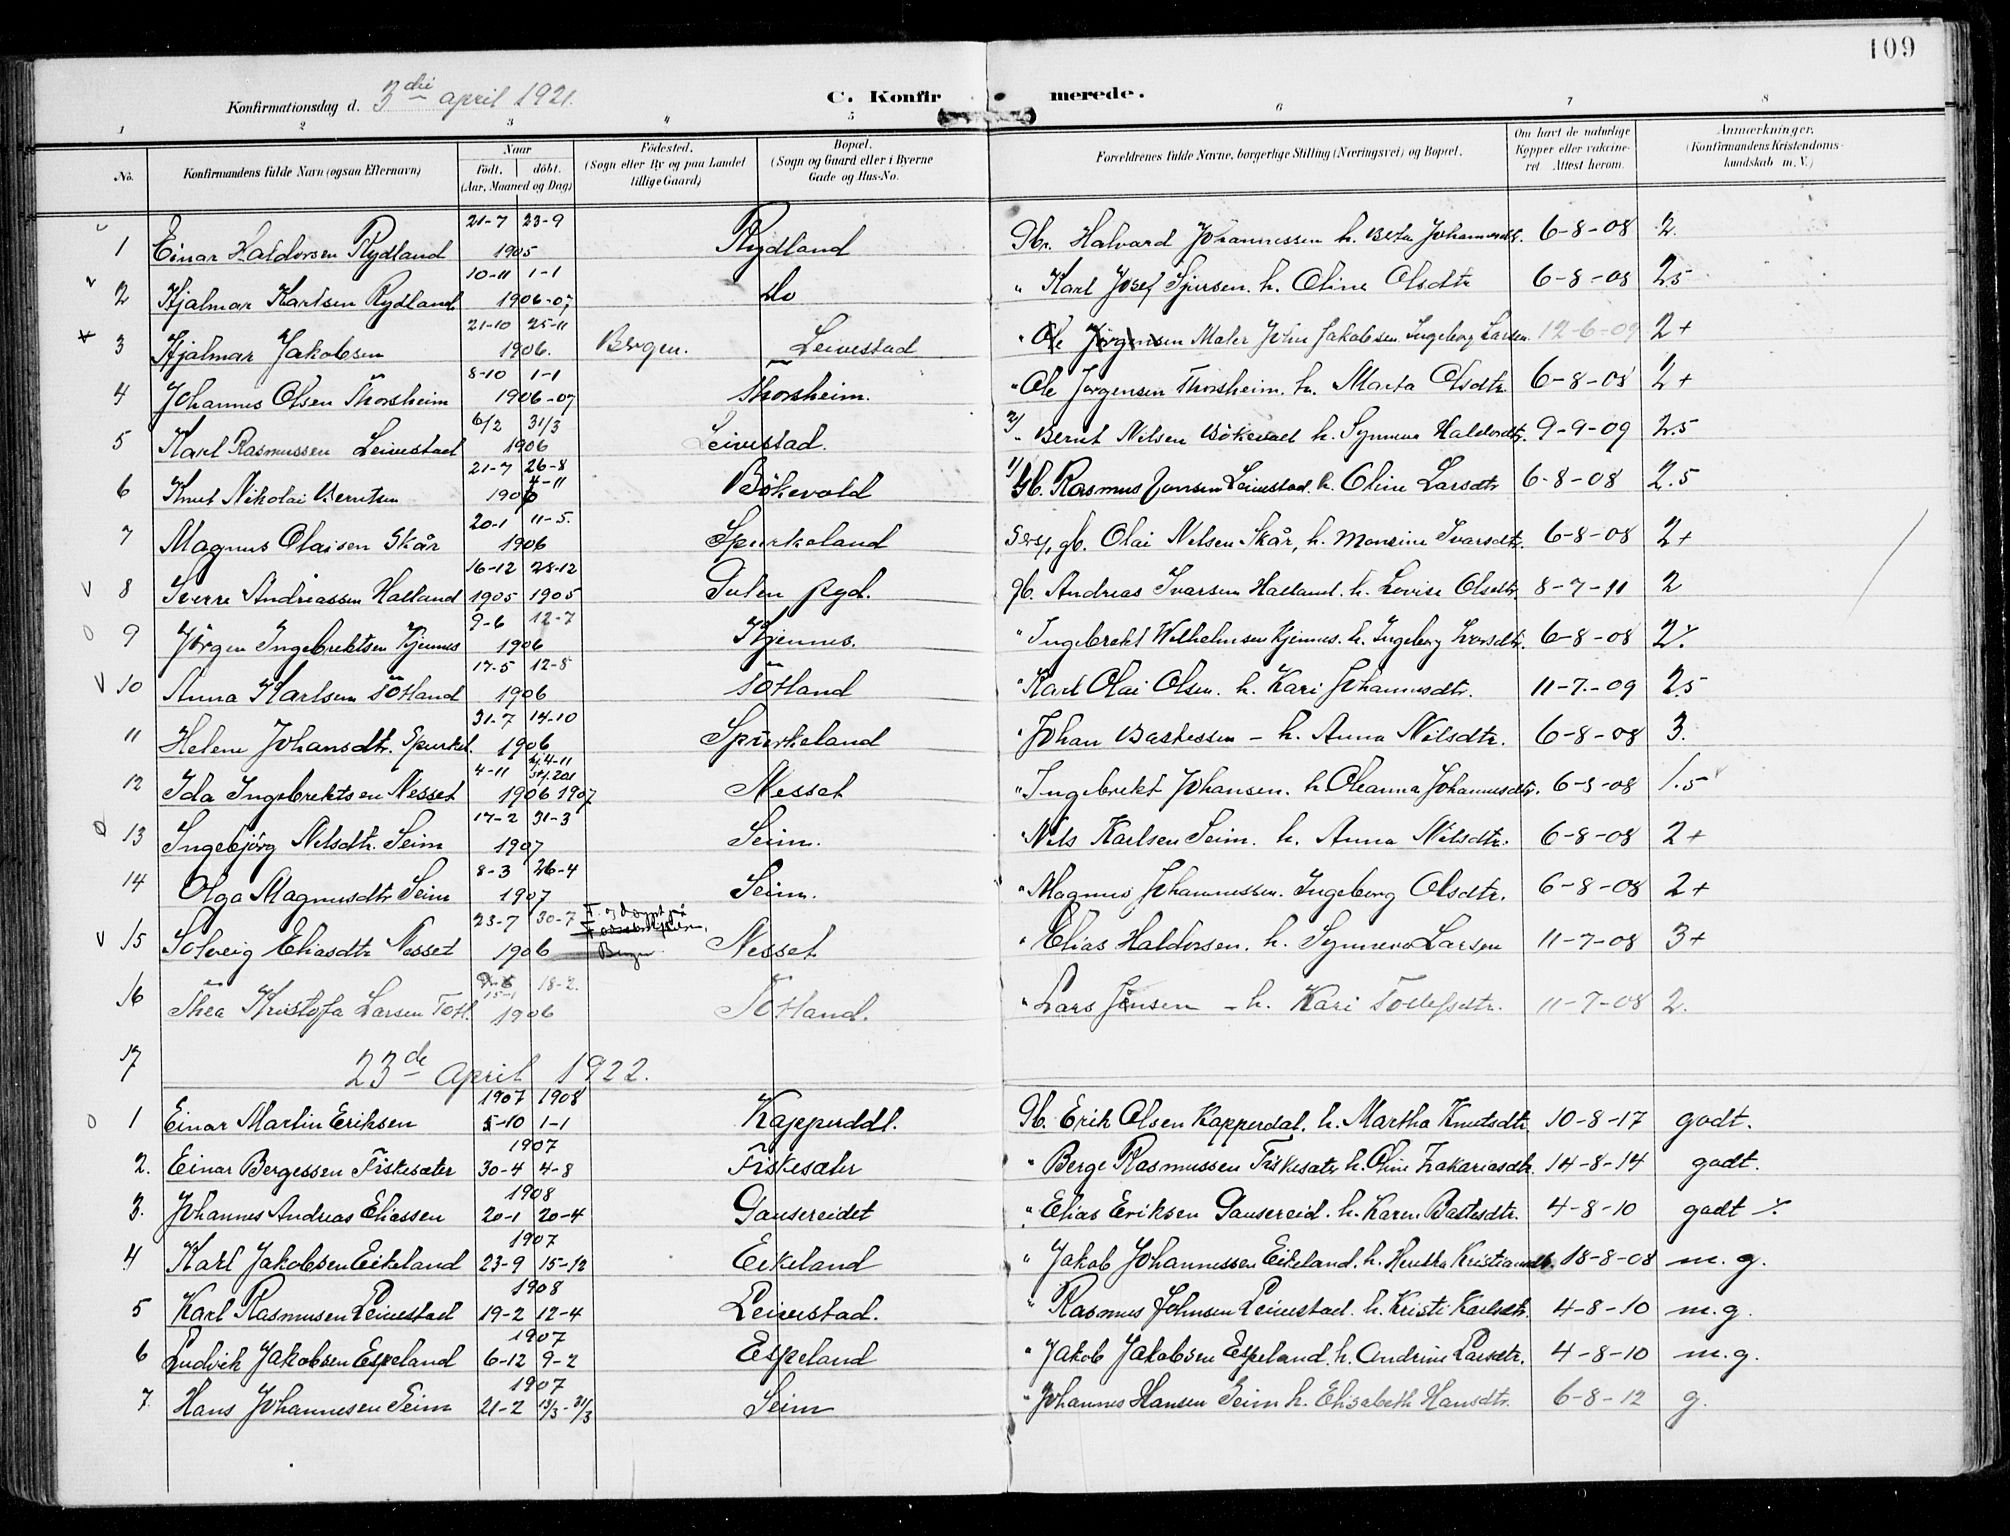 109
Konfirmationsdag d. 3die april 1921.
C. Konfirmerede.
1 2 3 4 5 6 7 8
No.
Konfirmandens fulde Navn (ogsaa Efternavn)
Naar født, døbt. (Aar, Maaned og Dag)
Fødested. (Sogn eller By og paa Landet tillige Gaard)
Bopæl. (Sogn og Gaard eller i Byerne Gade og Hus-No.
Forældrenes fulde Navne, borgerlige Stilling (Næringsvei) og Bopæl.
Om havt de naturlige Kopper eller vaccineret Attest herom.
Anmærkninger. (Konfirmandens Kristendomskundskab m. V.)
1 Einar Haldorsen Rydland 21-7 23-9 1905 Rydland Gbr. Halvard Johannessen h. Berta Johannesdt. 6-8-08 2.
2 Hjalmar Karlsen Rydland 10-11 1-1 1906-07 Do " Karl Josef Sjursen. h. Oline Olsdtr 6-8-08 2.5
3 Hjalmar Jakobsen 21-10 25-11 1906. Bergen. Leivestad " Ole Jørgensen Maler John Jakobsen. Ingeborg Larsen. 12-6-09 2+
4 Johannes Olsen Thorsheim 8-10 1-1 1906-07 Thorsheim. " Ole Jørgensen Thorsheim. h. Marta Olsdtr. 6-8-08 2+
5 Karl Rasmussen Leivestad 6/2 31/3 1906 Leivestad. 2/ " Bernt Nilsen Bökevoll h. Synneva Haldordtr. 9-9-09 2.5
6 Knut Nikolai Berntsen 21-7 26-8 4-11 1906 Bökevold 1/ Gb. Rasmus Jonsen Leivestad. h. Oline Larsdtr 6-8-08 2.5
7 Magnus Olaisen Skår 20-1 11-5. 1906 Spurkeland gb. Olai Nilsen Skår, h. Monsine Ivarsdtr. 6-8-08 2+
8 Sverre Andreassen Halland 16-12 28-12 1905 1905 Gulen pgd. gb. Andreas Ivarsen Halland. h. Lovise Olsdtr. 8-7-11 2
9 Jörgen Ingebrektsen Kjennes 9-6 12-7 1906 Kjennes. " Ingebrekt Wilhelmsen Kjennes. h. Ingeborg Iversdtr. 6-8-08 2%
10 Anna Karlsen Totland 17-5 12-8 1906 Totland " Karl Olai Olsen. h. Kari Johannesdtr. 11-7-09 2.5
11 Helene Johansdtr. Spurkel. 31-7 14-10 1906 Spurkeland " Johan Bastessen - h. Anna Nilsdtr. 6-8-08 3.
12 Ida Ingebrektsen Nesset 4-11 1906 1907 Nesset " Ingebrekt Johansen. h Oleanna Johannesdtr. 6-8-08 1.5
13 Ingebjörg Nilsdtr. Seim 17-2 31-3 1907 Seim. " Nils Karlsen Seim. h. Anna Nilsdtr. 6-8-08 2+
14 Olga Magnusdtr Seim 8-3 26-4 1907 Seim. " Magnus Johannessen. Ingeborg Olsdtr. 6-8-08 2+
15 Solveig Eliasdtr Nesset 23-7 30-7 1906 Bergen Nesset " Elias Haldorsen. h. Synneva Larsen 11-7-08 3+
16 Thea Kristofa Larsen Totl. 15-1 18-2. 1906 Totland. " Lars Jensen - h. Kari Tollefsdtr. 11-7-08 2.
17 23de april 1922.
1 Einar Martin Eriksen 1907 1908 5-10 1-1 Kapperddl. Gb. Erik Olsen Kapperdal. h. Martha Knutsdtr 10-8-17 godt.
2. Einar Bergessen Fiskesæter 1907 30-4 4-8 Fiskesæter " Berge Rasmussen Fiskesæter h. Oline Zakariasdtr. 14-8-14 godt.
3. Johannes Andreas Eliassen 1908 20-1 20-4 Gausereidet " Elias Eriksen Gausereid. h. Karen Bastesdtr. 4-8-10 godt %
4 Karl Jakobsen Eikeland 1907 23-9 15-12 Eikeland " Jakob Johannessen Eikeland. h. Heretha Kristiansdt. 18-8-08 m. g.
5 Karl Rasmusen Leivestad 1908 19-2 12-4 Leivestad. " Rasmus Johnsen Leivestad. h. Kristi Karlsdtr. 4-8-10 m. g.
6 Ludvik Jakobsen Espeland 1907 6-12 9-2 Espeland " Jakob Jakobsen Espeland. h. Andrine Larsdtr. 4-8-10 m. g.
7. Hans Johannesen Seim 1907 21-2 13/3-31/3 Seim " Johannes Hansen Seim h. Elisabeth Hansdtr. 6-8-12 g.